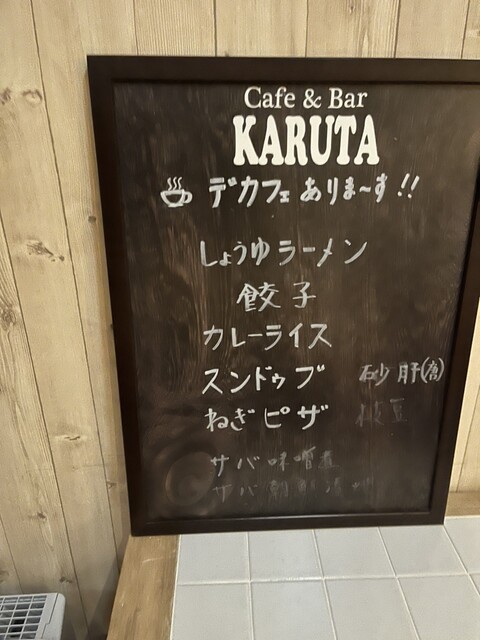 Cafe & Bar
KARUTA
デカフェありま〜す!!
しょうゆラーメン
餃子
カレーライス
スンドゥブ 砂肝(唐)
ねぎピザ 枝豆
サバ味噌煮
サバ